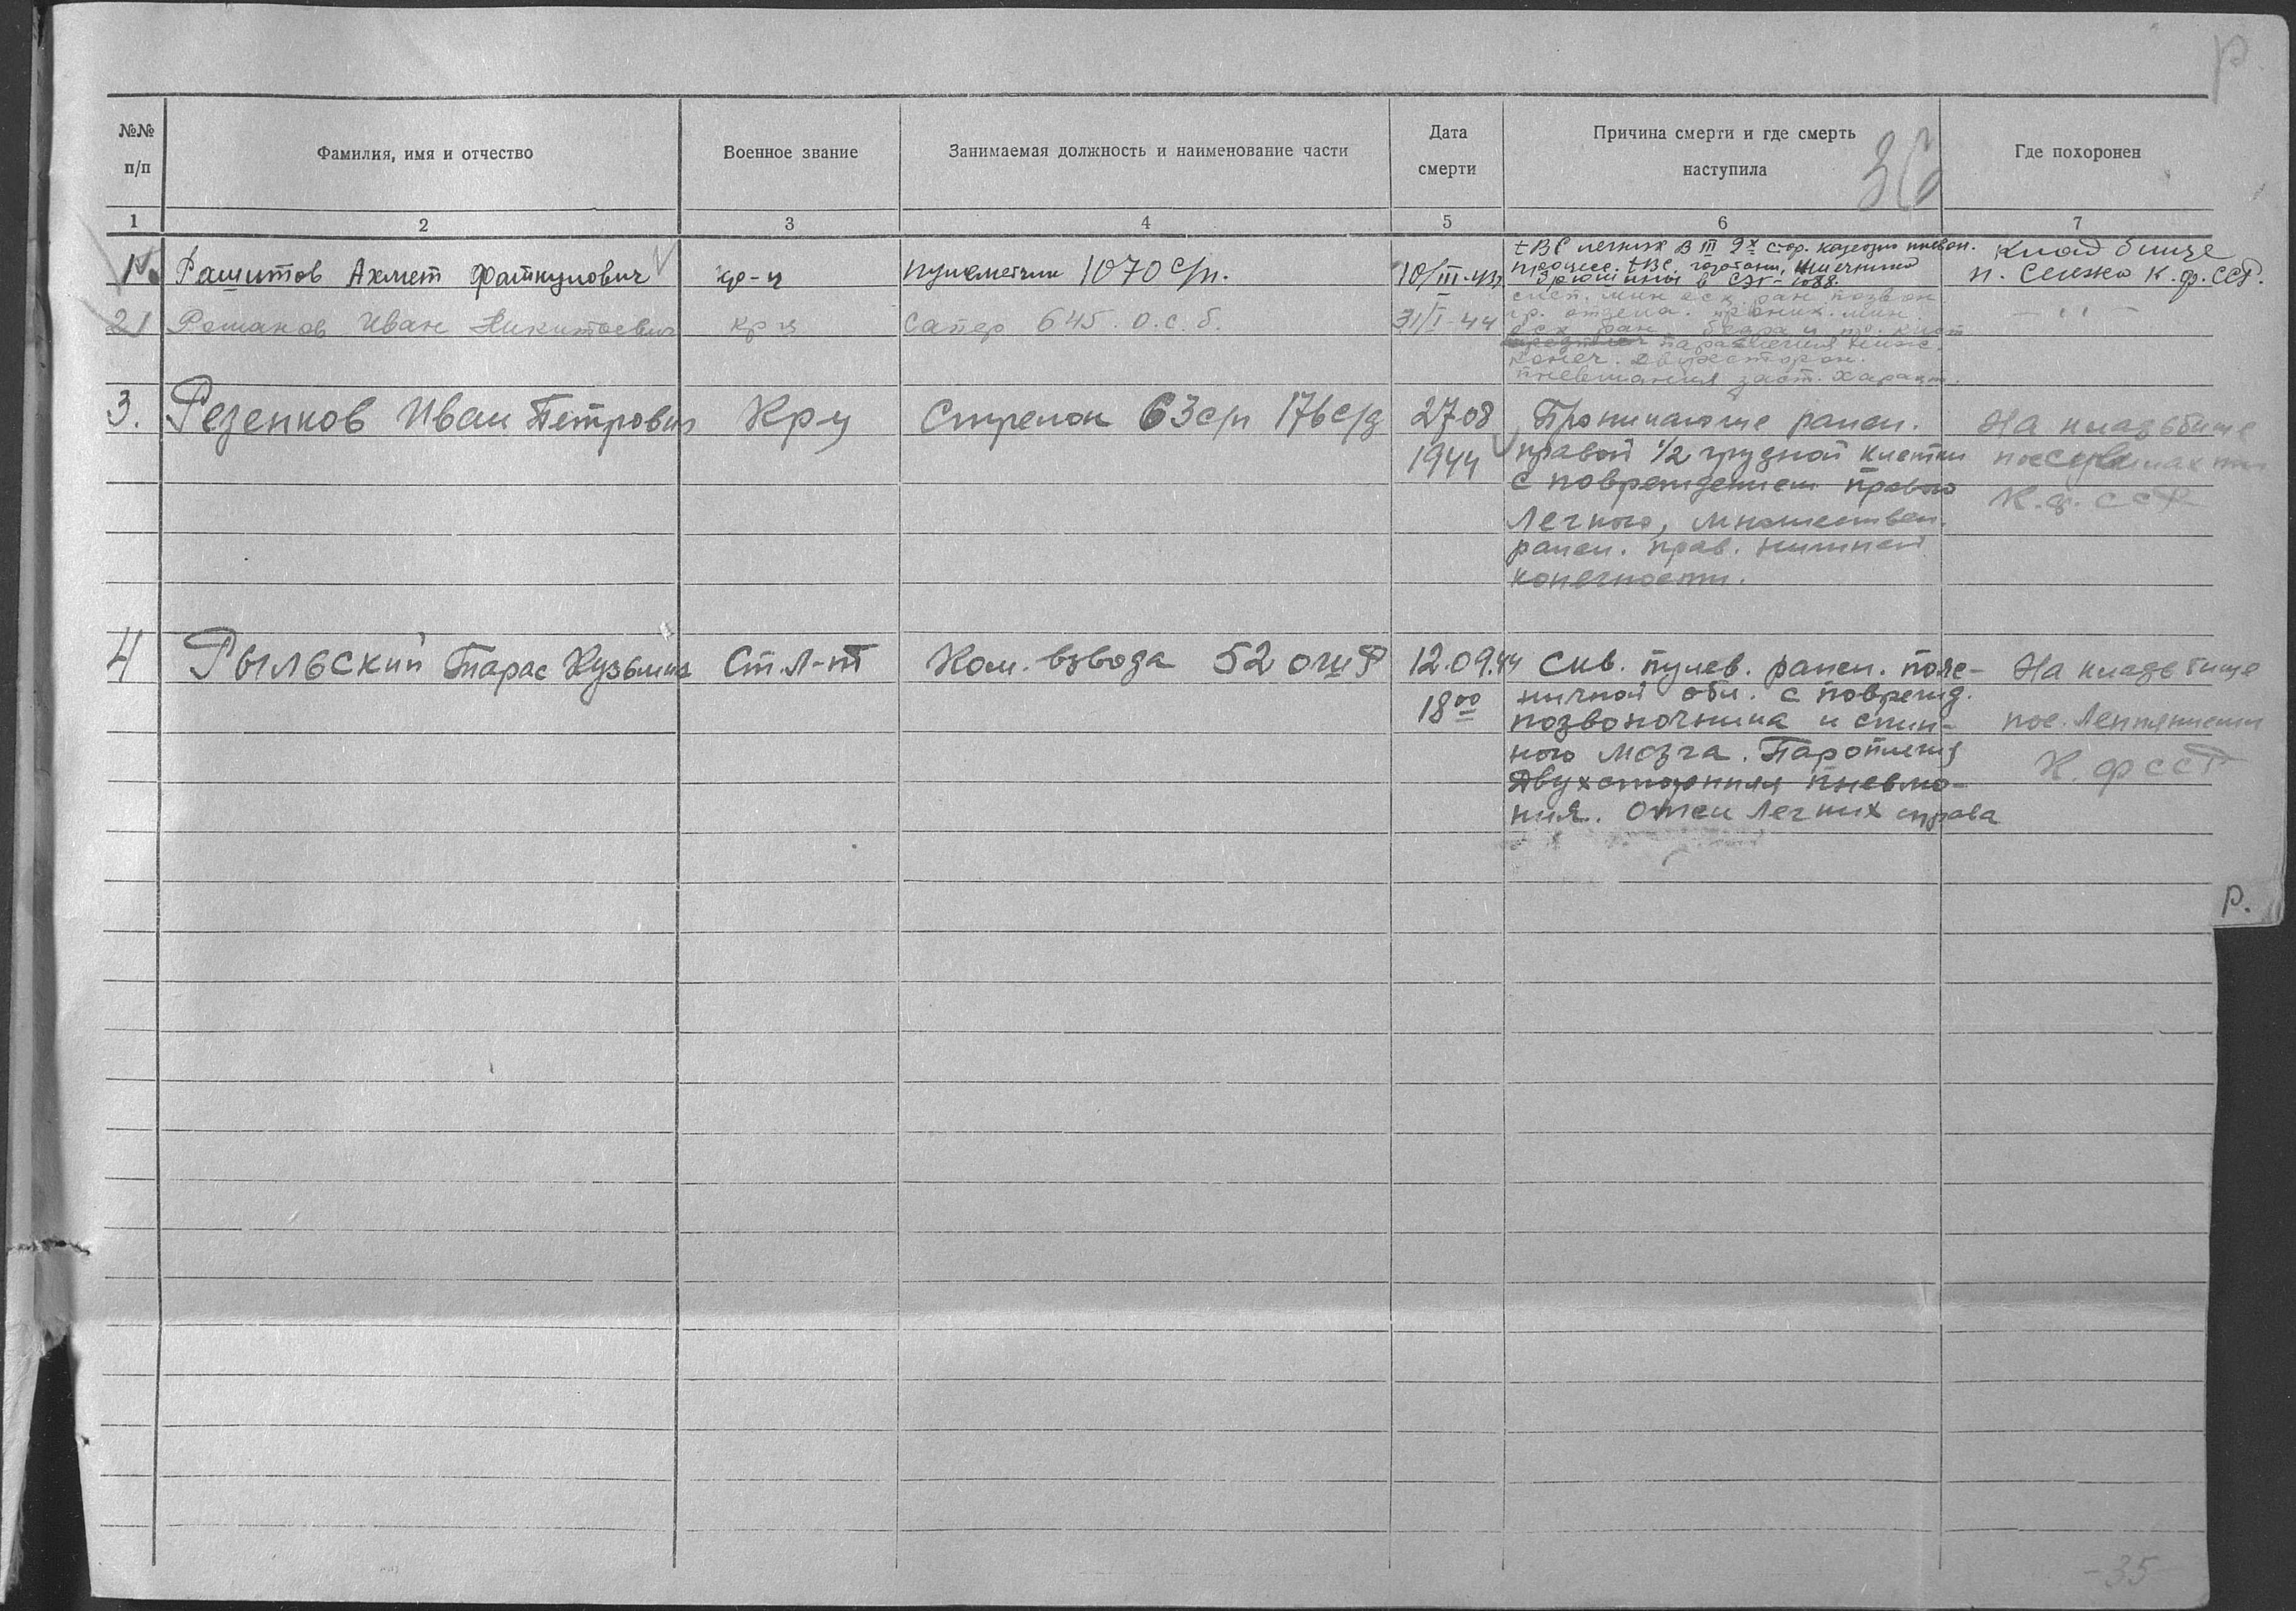 Р.
№№ п/п
Фамилия, имя и отчество
Военное звание
Занимаемая должность и наименование части
Дата смерти
Причина смерти и где смерть наступила
36
Где похоронен
1 2 3 4 5 6 7
1. Рашитов Ахмет Фаткулович кр-ц пулеметчик 1070 с/п. 10/III-43
tBC легких В III 2х стор. казеозн. пневм.
процесс. tBC. гортани, кишечника
брюшины в СЭГ-1088.
кладбище
п. Сегежа К.ф.ССР.
2 Романов Иван Никитович кр-ц сапер 645. о.с.б. 31/I-44
слеп. мин оск. ран. позвон.
гр. отдела. проник. мин.
оск. ран. бедра и
параплегия нижн.
конеч. двухсторон.
пневмония заст. характ.
— '' —
3. Резенков Иван Петрович Кр-ц Стрелок 63 с/п 176 с/д 27.08
1944
Проникающие ранен.
правой 1/2 грудной клетки
с повреждением правого
легкого, множествен.
ранен. прав. нижней
конечности.
На кладьбище
К.ф.ССР
4 Рыльский Тарас Кузьмич Ст. л-т Ком. взвода 52 ошр 12.09.44
18 00
Скв. пулев. ранен. пояс-
ничной обл. с поврежд.
позвоночника и спин-
ного мозга. Пароплегия
Двухсторонняя пневмо-
ния. Отек легких справа
На кладьбище
пос.
К.ФССР
Р.
-35